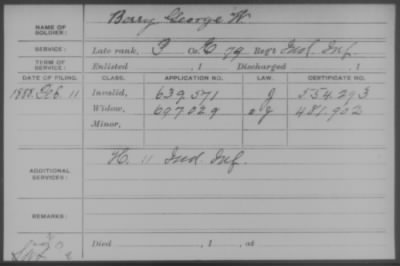 NAME OF SOLDIER: Berry George W.
SERVICE: Late rank, P Co. G 79 Reg't Ind. Inf.
TERM OF SERVICE: Enlisted , 1 Discharged , 1
DATE OF FILING. CLASS. APPLICATION NO. LAW. CERTIFICATE NO.
1888. Feb. 11 Invalid, 639,571 J 554.293
Widow, 697029 J 481.902
Minor,
ADDITIONAL SERVICES: H. 11 Ind. Inf.
REMARKS:
Died , 1 , at